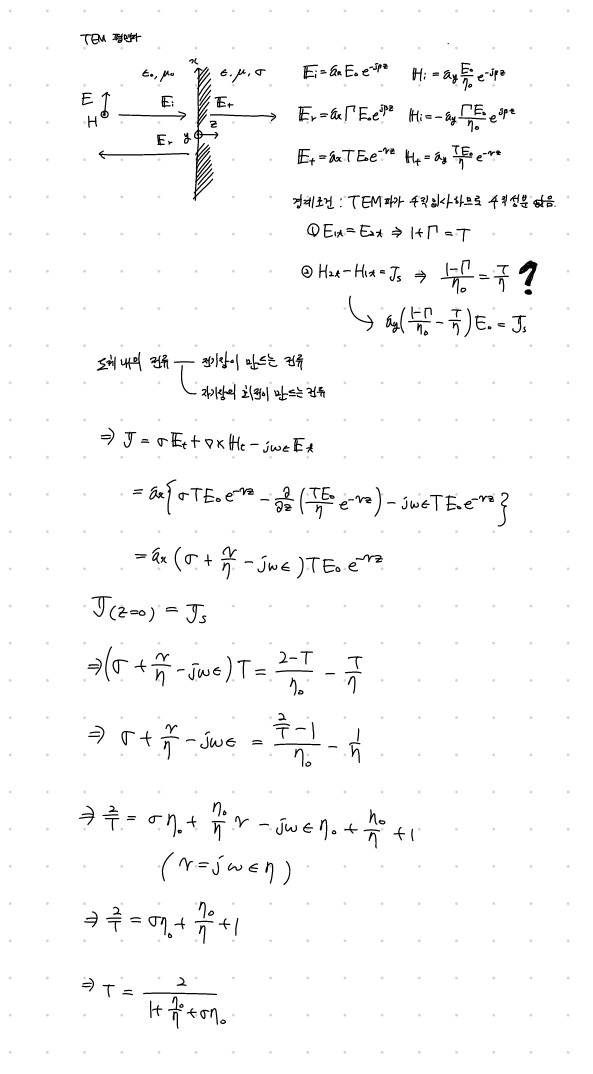 TEM 평면파
ε₀, μ₀ x ε, μ, σ
E H 𝔼i 𝔼t z y 𝔼r
𝔼i = âx E₀ e^{-jβz} ℍi = ây E₀/η₀ e^{-jβz}
𝔼r = âx Γ E₀ e^{jβz} ℍi = -ây ΓE₀/η₀ e^{jβz}
𝔼t = âx T E₀ e^{-γz} ℍt = ây TE₀/η e^{-γz}
경계조건 : TEM파가 수직입사하므로 수직성분 없음.
① E1t = E2t ⇒ 1+Γ = T
② H2t - H1t = Js ⇒ (1-Γ)/η₀ = T/η ?
ây((1-Γ)/η₀ - T/η)E₀ = 𝕁s
도체 내의 전류 — 전기장이 만드는 전류
자기장의 회전이 만드는 전류
⇒ 𝕁 = σ𝔼t + ∇×ℍt - jωε𝔼t
= âx{σTE₀e^{-γz} - ∂/∂z(TE₀/η e^{-γz}) - jωεTE₀e^{-γz}}
= âx(σ + γ/η - jωε)TE₀e^{-γz}
𝕁(z=0) = 𝕁s
⇒ (σ + γ/η - jωε)T = (2-T)/η₀ - T/η
⇒ σ + γ/η - jωε = (2/T - 1)/η₀ - 1/η
⇒ 2/T = ση₀ + η₀/η γ - jωεη₀ + η₀/η + 1
(γ = jωεη)
⇒ 2/T = ση₀ + η₀/η + 1
⇒ T = 2/(1 + η₀/η + ση₀)